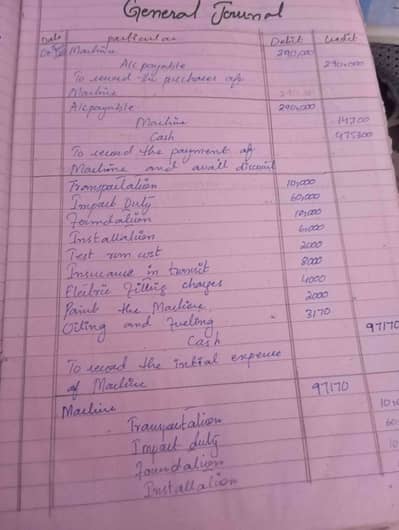 General Journal
Date particular Debit Credit
Machine 290,000
A/c payable 290,000
To record the purchases of
Machine
A/c payable 290,000
Machine 14700
Cash 475300
To record the payment of
Machine and avail discount
Transportation 10,000
Import Duty 60,000
Foundation
Installation
Test run cost 2000
Insurance in transit 8000
Electric fitting charges 4000
Paint the Machine 2000
Oiling and Fueling 3170
Cash 97170
To record the initial expense
of Machine
Machine 97170
Transportation
Import duty
Foundation
Installation